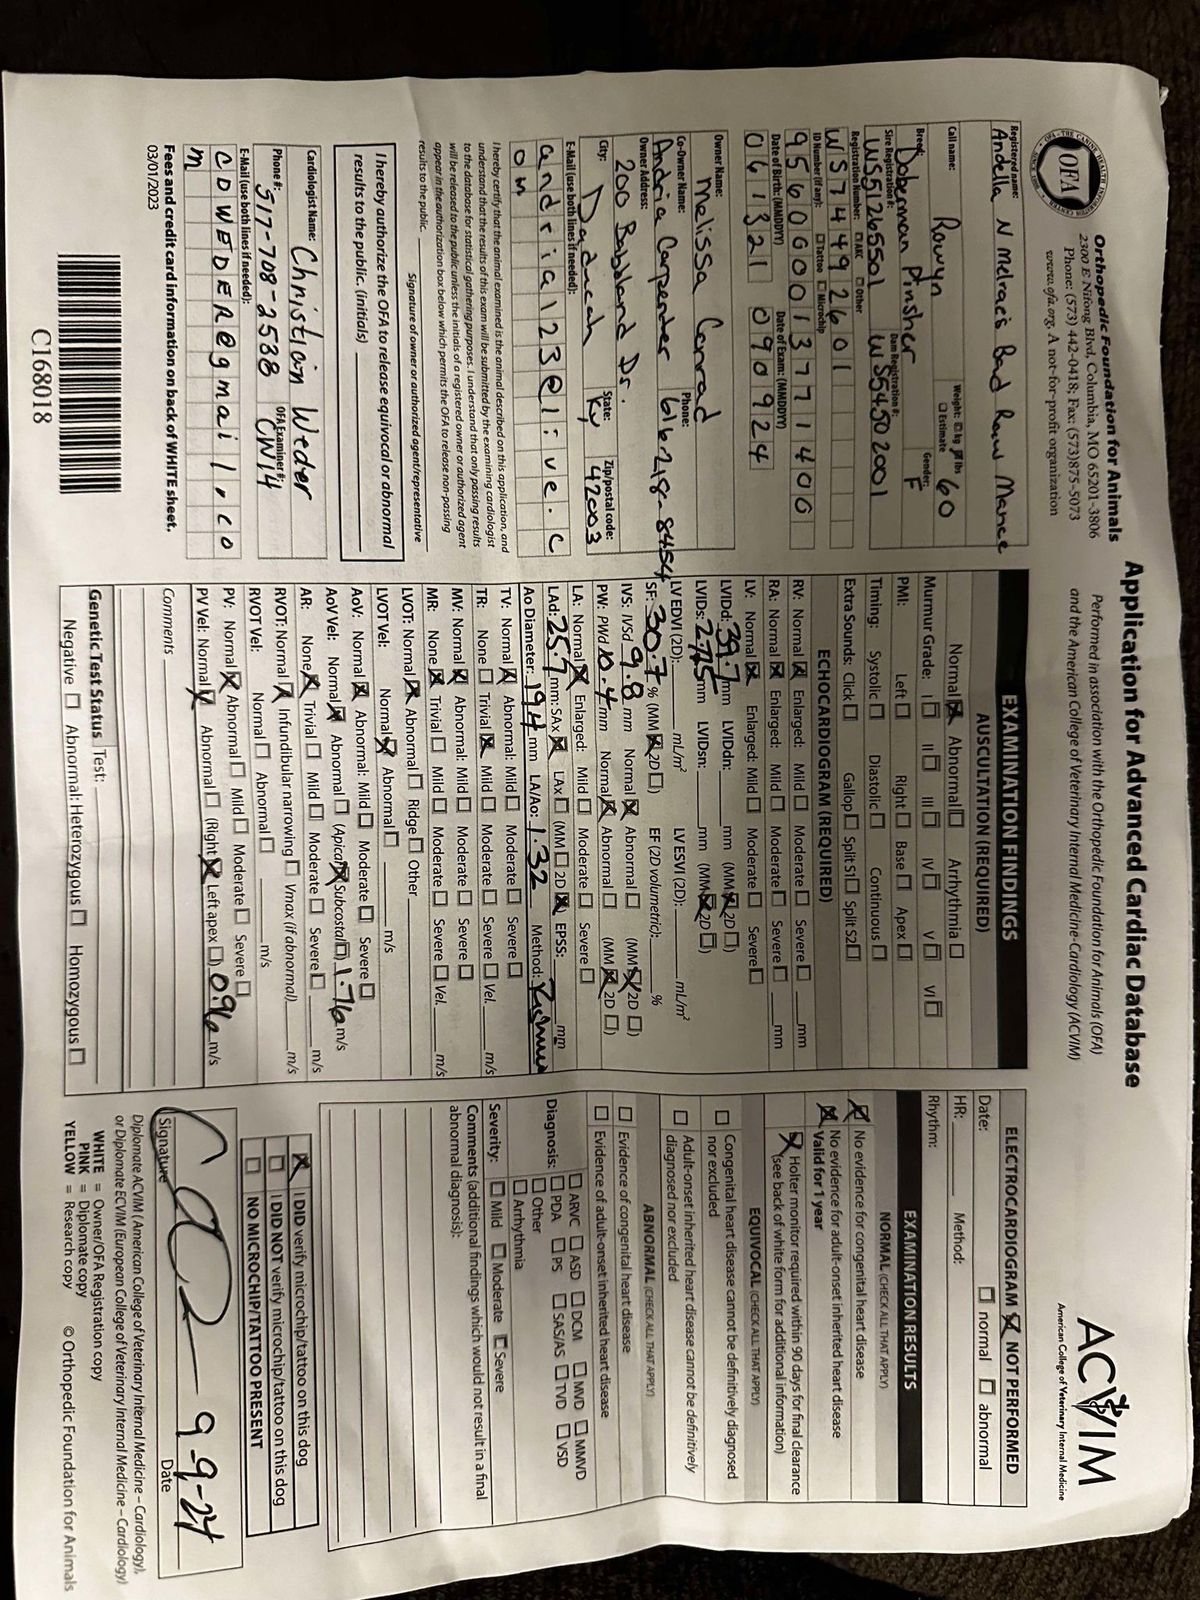 Orthopedic Foundation for Animals
2300 E Nifong Blvd, Columbia, MO 65201-3806
Phone: (573) 442-0418; Fax: (573)875-5073
www.ofa.org, A not-for-profit organization
OFA
Application for Advanced Cardiac Database
Performed in association with the Orthopedic Foundation for Animals (OFA)
and the American College of Veterinary Internal Medicine-Cardiology (ACVIM)
ACVIM
American College of Veterinary Internal Medicine
Registered name:
Andella N Melrac's Bad Raw Mance
Call name: Rowyn
Weight: kg lbs 60
Estimate
Breed: Doberman Pinsher
Gender: F
Sire Registration #: WS51265501
Dam Registration #: WS54502001
Registration Number: AKC Other
WS74492601
ID Number (if any): Tattoo Microchip
956000013771400
Date of Birth: (MMDDYY) 061321
Date of Exam: (MMDDYY) 090924
Owner Name: Melissa Conrad
Co-Owner Name: Andria Carpender
Phone: 616-218-8454
Owner Address: 200 Babbland Dr.
City: Paducah
State: Ky
Zip/postal code: 42003
E-Mail (use both lines if needed):
andria123@live.c
om
I hereby certify that the animal examined is the animal described on this application, and
understand that the results of this exam will be submitted by the examining cardiologist
to the database for statistical gathering purposes. I understand that only passing results
will be released to the public unless the initials of a registered owner or authorized agent
appear in the authorization box below which permits the OFA to release non-passing
results to the public.
Signature of owner or authorized agent/representative
I hereby authorize the OFA to release equivocal or abnormal
results to the public. (initials)
Cardiologist Name: Christian Weder
Phone #: 517-708-2538
OFA Examiner #: CW14
E-Mail (use both lines if needed):
CDWEDER@gmail.co
m
Fees and credit card information on back of WHITE sheet.
03/01/2023
C168018
EXAMINATION FINDINGS
AUSCULTATION (REQUIRED)
Normal Abnormal Arrhythmia
Murmur Grade: I II III IV V VI
PMI: Left Right Base Apex
Timing: Systolic Diastolic Continuous
Extra Sounds: Click Gallop Split S1 Split S2
ECHOCARDIOGRAM (REQUIRED)
RV: Normal Enlarged: Mild Moderate Severe mm
RA: Normal Enlarged: Mild Moderate Severe mm
LV: Normal Enlarged: Mild Moderate Severe
LVIDd: 39.7 mm LVIDdn: mm (MM 2D)
LVIDs: 27.5 mm LVIDsn: mm (MM 2D)
LV EDVI (2D): mL/m² LV ESVI (2D): mL/m²
SF: 30.7 % (MM 2D) EF (2D volumetric): %
IVS: IVSd 9.8 mm Normal Abnormal (MM 2D)
PW: PWd 10.4 mm Normal Abnormal (MM 2D)
LA: Normal Enlarged: Mild Moderate Severe
LAd: 25.7 mm: SAx LAx (MM 2D) EPSS: mm
Ao Diameter: 19.4 mm LA/Ao: 1.32 Method:
TV: Normal Abnormal: Mild Moderate Severe
TR: None Trivial Mild Moderate Severe Vel. m/s
MV: Normal Abnormal: Mild Moderate Severe
MR: None Trivial Mild Moderate Severe Vel. m/s
LVOT: Normal Abnormal Ridge Other
LVOT Vel: Normal Abnormal m/s
AoV: Normal Abnormal: Mild Moderate Severe
AoV Vel: Normal Abnormal (Apical Subcostal) 1.76 m/s
AR: None Trivial Mild Moderate Severe m/s
RVOT: Normal Infundibular narrowing Vmax (if abnormal) m/s
RVOT Vel: Normal Abnormal m/s
PV: Normal Abnormal Mild Moderate Severe
PV Vel: Normal Abnormal (Right Left apex) 0.96 m/s
Comments
Genetic Test Status Test:
Negative Abnormal: Heterozygous Homozygous
ELECTROCARDIOGRAM NOT PERFORMED
Date: normal abnormal
HR: Method:
Rhythm:
EXAMINATION RESULTS
NORMAL (CHECK ALL THAT APPLY)
No evidence for congenital heart disease
No evidence for adult-onset inherited heart disease
Valid for 1 year
Holter monitor required within 90 days for final clearance
(see back of white form for additional information)
EQUIVOCAL (CHECK ALL THAT APPLY)
Congenital heart disease cannot be definitively diagnosed
nor excluded
Adult-onset inherited heart disease cannot be definitively
diagnosed nor excluded
ABNORMAL (CHECK ALL THAT APPLY)
Evidence of congenital heart disease
Evidence of adult-onset inherited heart disease
Diagnosis: ARVC ASD DCM MVD MMVD
PDA PS SAS/AS TVD VSD
Other
Arrhythmia
Severity: Mild Moderate Severe
Comments (additional findings which would not result in a final
abnormal diagnosis):
I DID verify microchip/tattoo on this dog
I DID NOT verify microchip/tattoo on this dog
NO MICROCHIP/TATTOO PRESENT
9-9-24
Signature Date
Diplomate ACVIM (American College of Veterinary Internal Medicine – Cardiology),
or Diplomate ECVIM (European College of Veterinary Internal Medicine – Cardiology)
WHITE = Owner/OFA Registration copy
PINK = Diplomate copy
YELLOW = Research copy
© Orthopedic Foundation for Animals